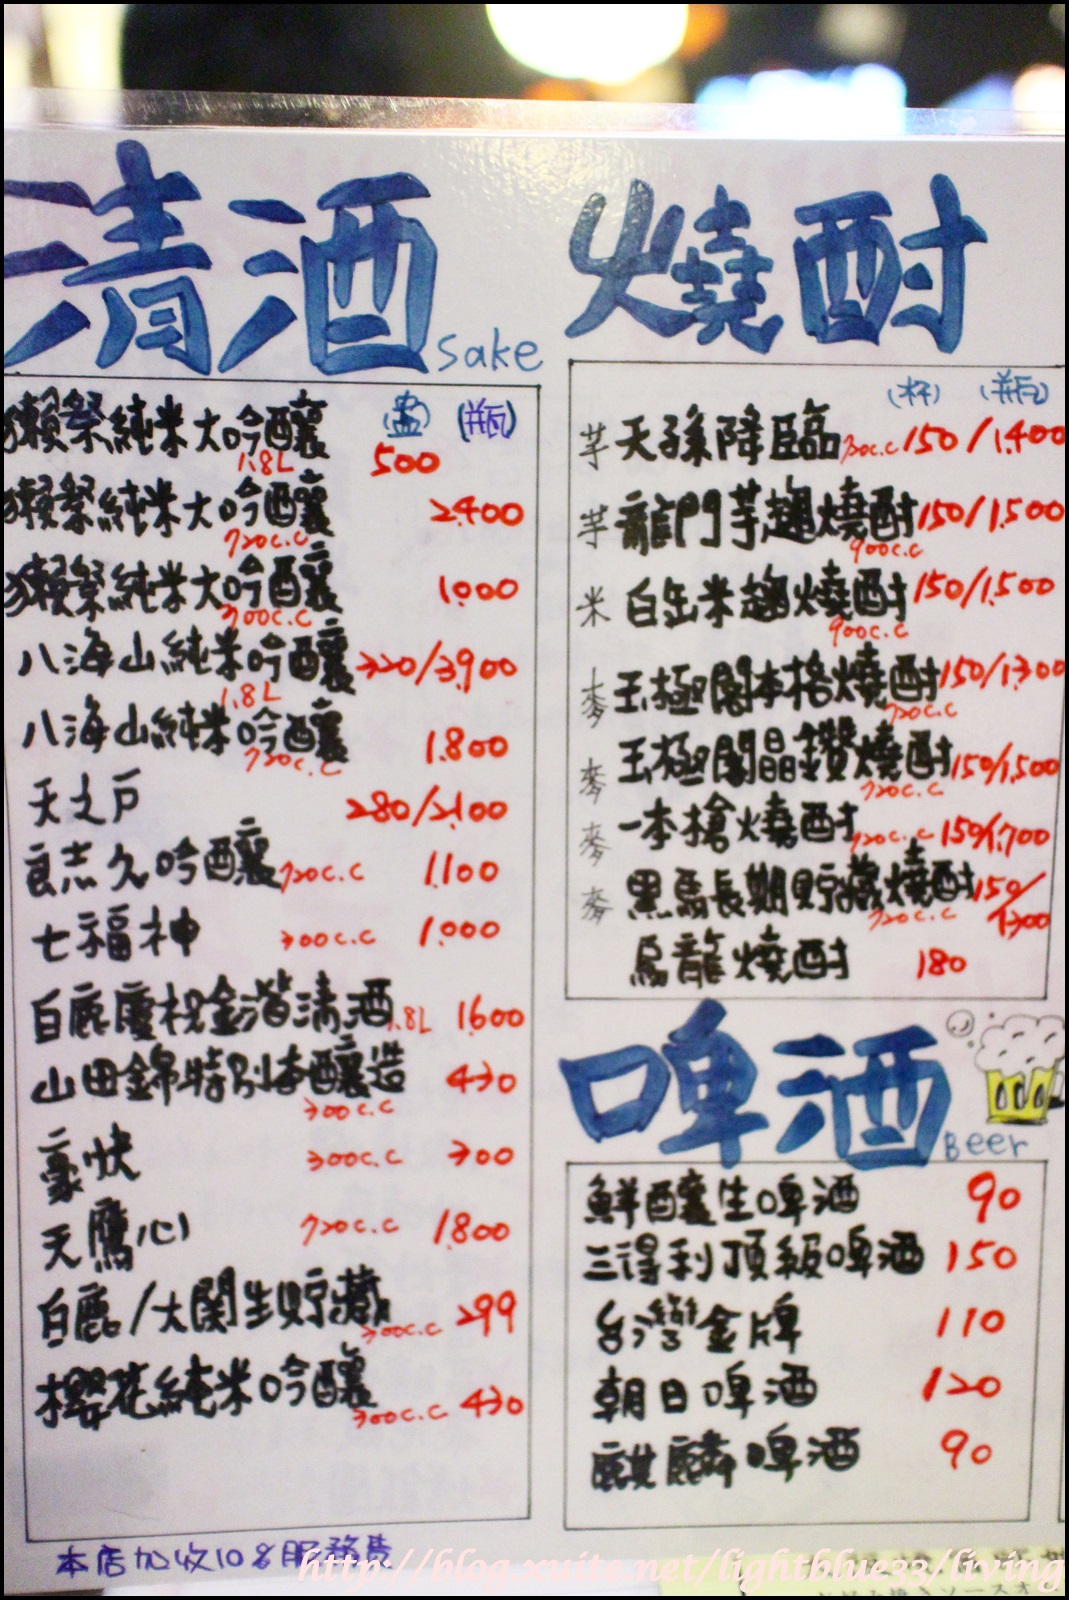 清酒 Sake
(盅) (瓶)
獺祭純米大吟釀 1.8L 500
獺祭純米大吟釀 720c.c 2400
獺祭純米大吟釀 300c.c 1000
八海山純米吟釀 1.8L 320/3,900
八海山純米吟釀 720c.c 1.800
天之戶 280/2.100
良志久吟釀 720c.c 1.100
七福神 300c.c 1.000
白鹿慶祝金箔清酒 1.8L 1600
山田錦特別本釀造 300c.c 430
豪快 300c.c 300
天鷹心 720c.c 1.800
白鹿/大関生貯藏 300c.c 299
櫻花純米吟釀 300c.c 430
本店加收10%服務費
燒酎
(杯) (瓶)
芋 天孫降臨 720c.c 150/1.400
芋 龍門芋麴燒酎 900c.c 150/1.500
米 白岳米麴燒酎 900c.c 150/1.500
麥 玉極閣本格燒酎 720c.c 150/1.300
麥 玉極閣晶鑽燒酎 720c.c 150/1.500
麥 一本槍燒酎 720c.c 150/1.700
麥 黑馬長期貯藏燒酎 720c.c 150/1300
烏龍燒酎 180
啤酒 Beer
鮮釀生啤酒 90
三得利頂級啤酒 150
台灣金牌 110
朝日啤酒 120
麒麟啤酒 90
http://blog.xuite.net/lightblue33/living